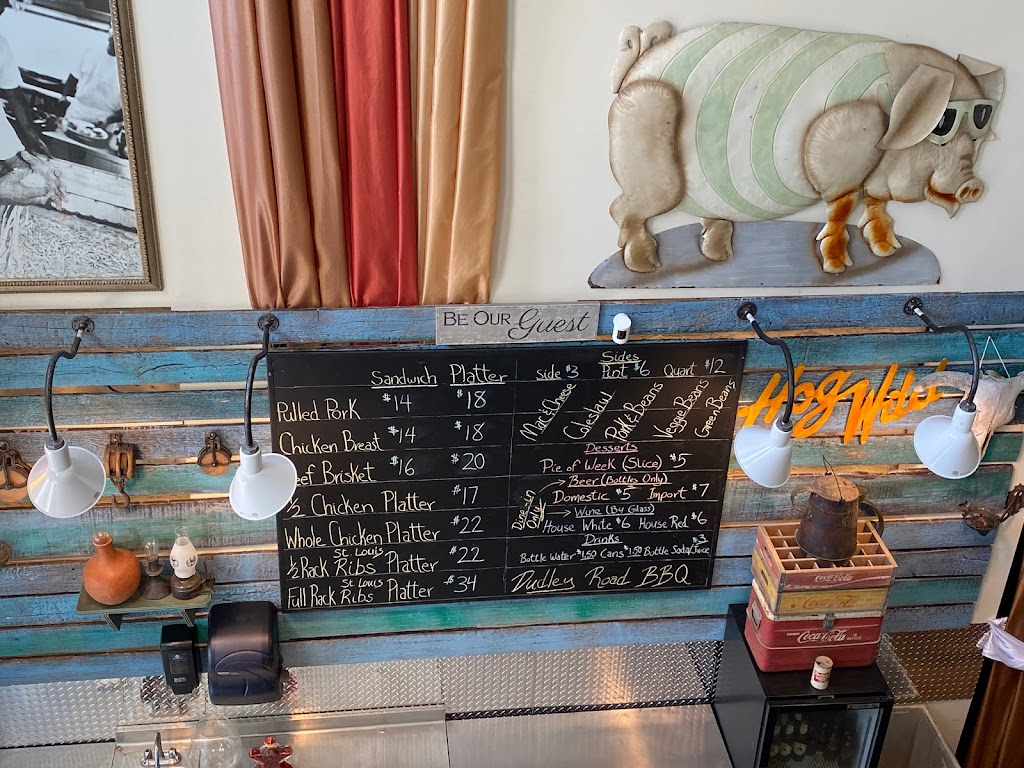 BE OUR Guest
Sandwich Platter
Pulled Pork $14 $18
Chicken Breast $14 $18
eef Brisket $16 $20
½ Chicken Platter $17
Whole Chicken Platter $22
½ Rack St. Louis Ribs Platter $22
Full Rack St. Louis Ribs Platter $34
Sides
Side $3 Pint $6 Quart $12
Mac & Cheese
Coleslaw
Pork & Beans
Veggie Beans
Green Beans
Desserts
Pie of Week (Slice) $5
Dine-in Only
Beer (Bottles Only)
Domestic $5 Import $7
Wine (By Glass)
House White $6 House Red $6
Drinks
Bottle Water $1.50 Cans $1.50 Bottle Soda/Juice $3
Dudley Road BBQ
Hog Wild
Coca-Cola
Coca-Cola
DRINK Coca-Cola